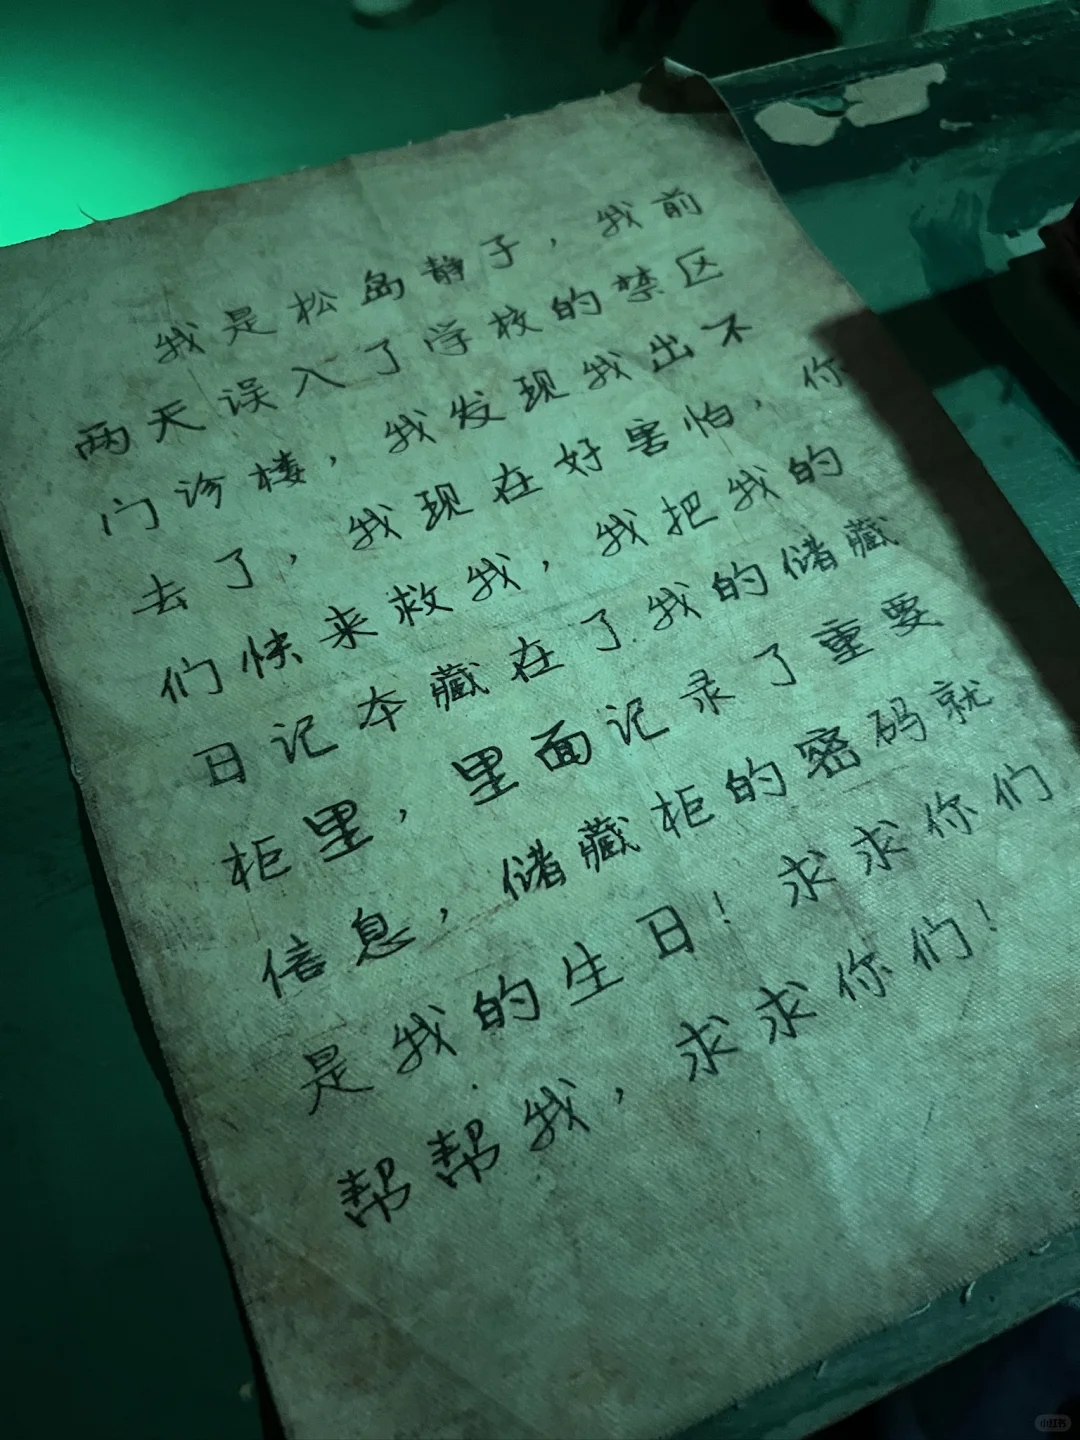 我是松岛静子，我前
两天误入了学校的禁区
门诊楼，我发现我出不
去了，我现在好害怕，你
们快来救我，我把我的
日记本藏在了我的储藏
柜里，里面记录了重要
信息，储藏柜的密码就
是我的生日！求求你们
帮帮我，求求你们！
小红书